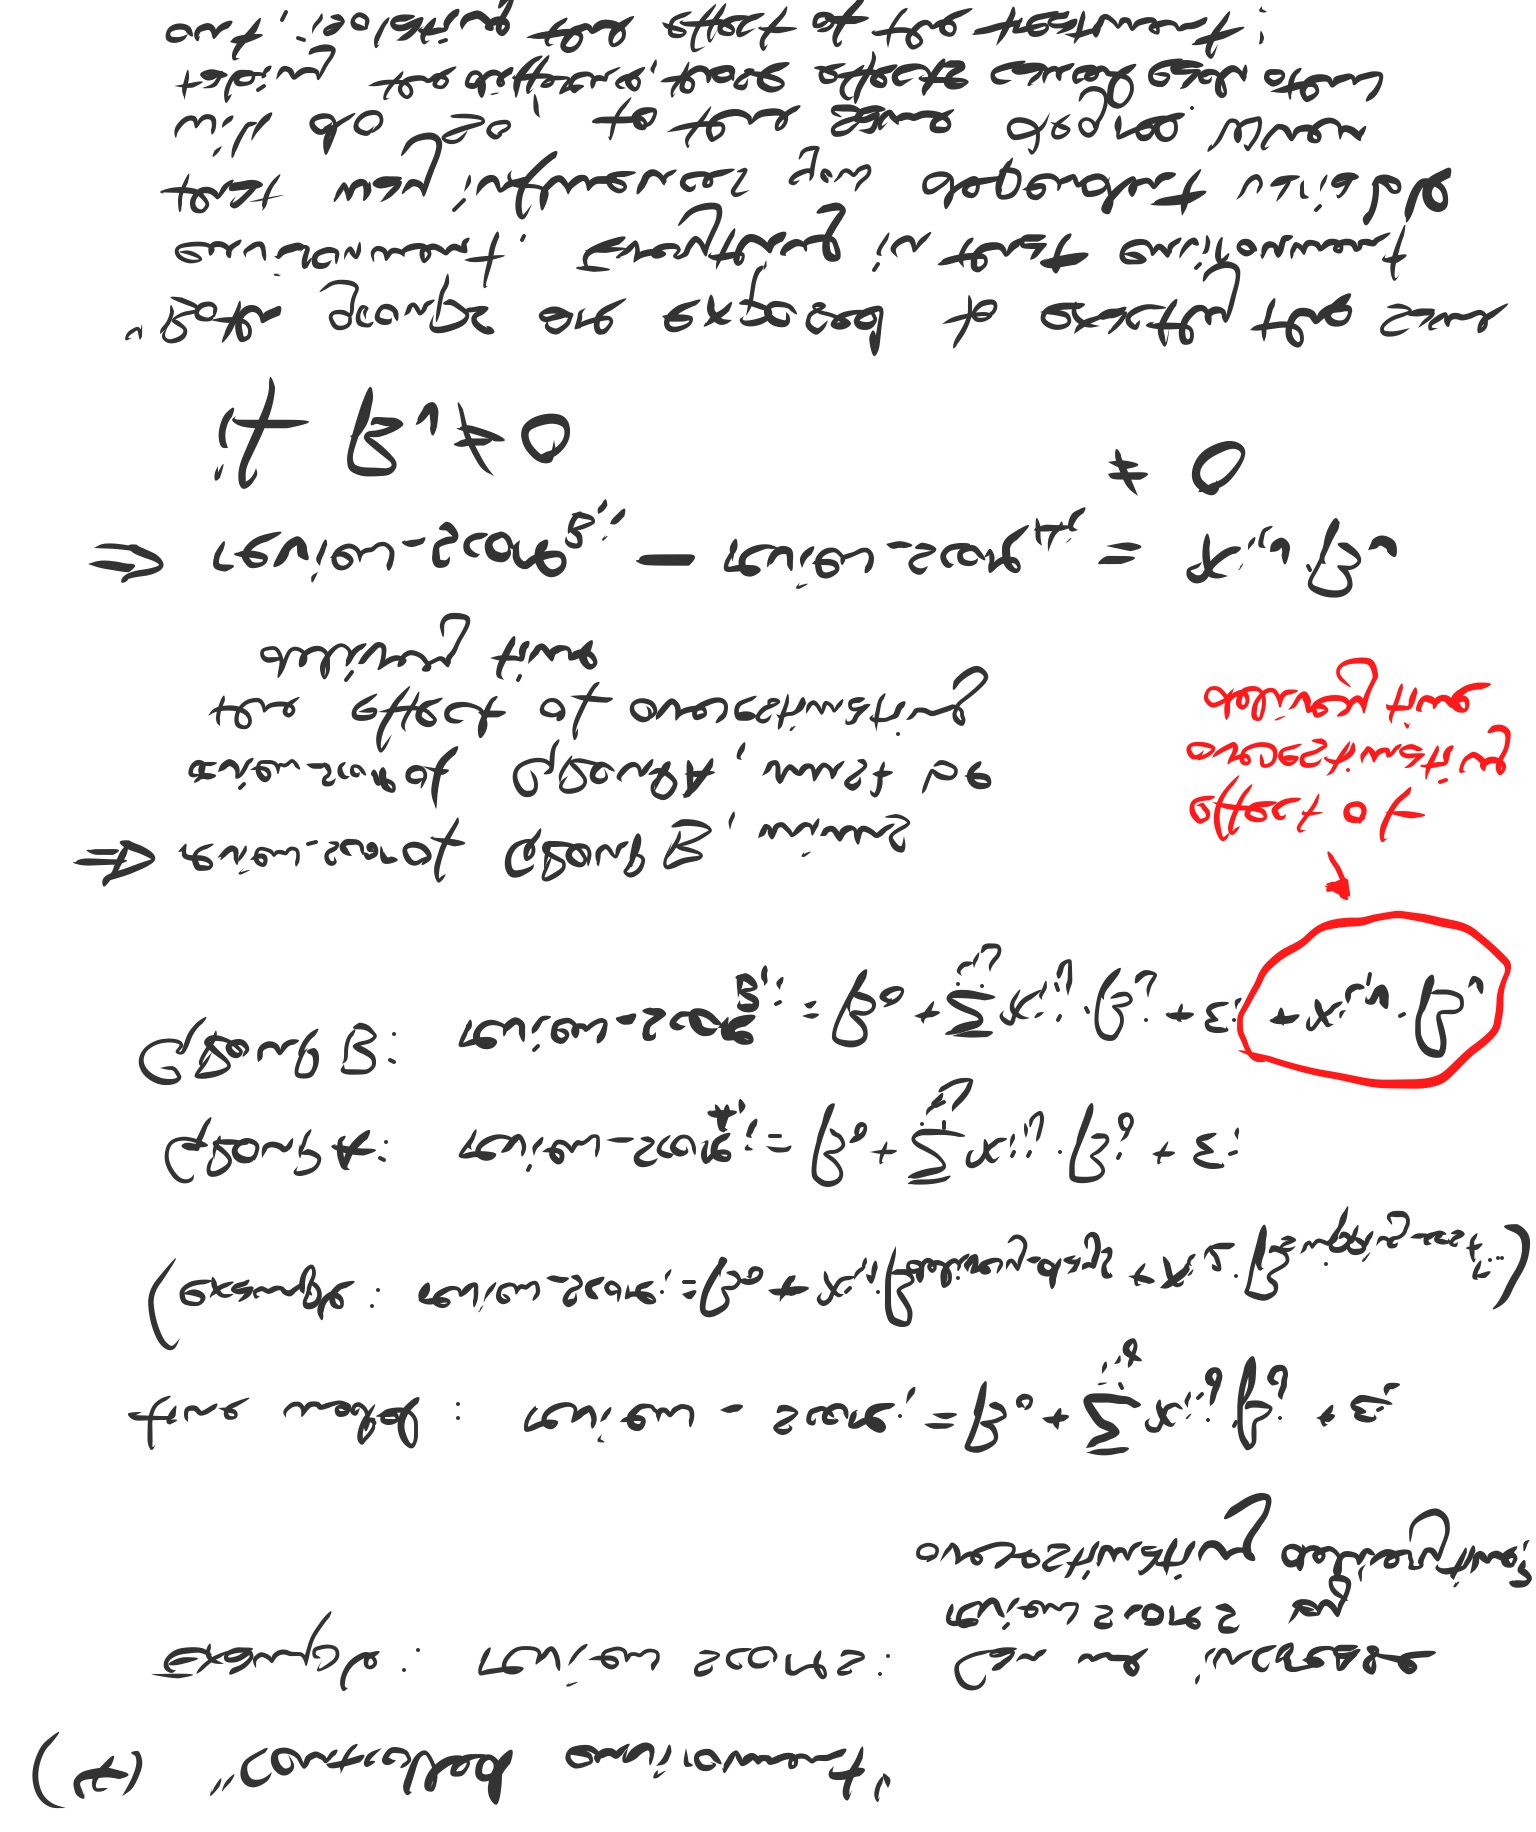 (4) "Controlled environment"
Example: review scores: Can we increase
review scores by
overestimating delivery time?
true model: review_score_i = β_0 + Σ_{i,j} x_{i,j} β_j + ε_i
(example: review_score_i = β_0 + x_{i,1} β_{delivery_days} + x_{i,2} · β_{shipping_cost} + ...)
GROUP A: review_score_{A,i} = β_0 + Σ_{i,j} x_{i,j} · β_j + ε_i
GROUP B: review_score_{B,i} = β_0 + Σ_{i,j} x_{i,j} · β_j + ε_i + x_{i,v} · β_v
effect of
overestimating
delivery time
⇒ review_score of GROUP B, minus
review_score of GROUP A, must be
the effect of overestimating
delivery time
⇒ review_score_{B,i} − review_score_{A,i} = x_{i,v} β_v
≠ 0
if β_v ≠ 0
"Both groups are exposed to exactly the same
environment. Everything in that environment
that way influences your dependent variable
will do so, to the same degree. When
taking the difference, those effects cancel each other
out, isolating the effect of the treatment!